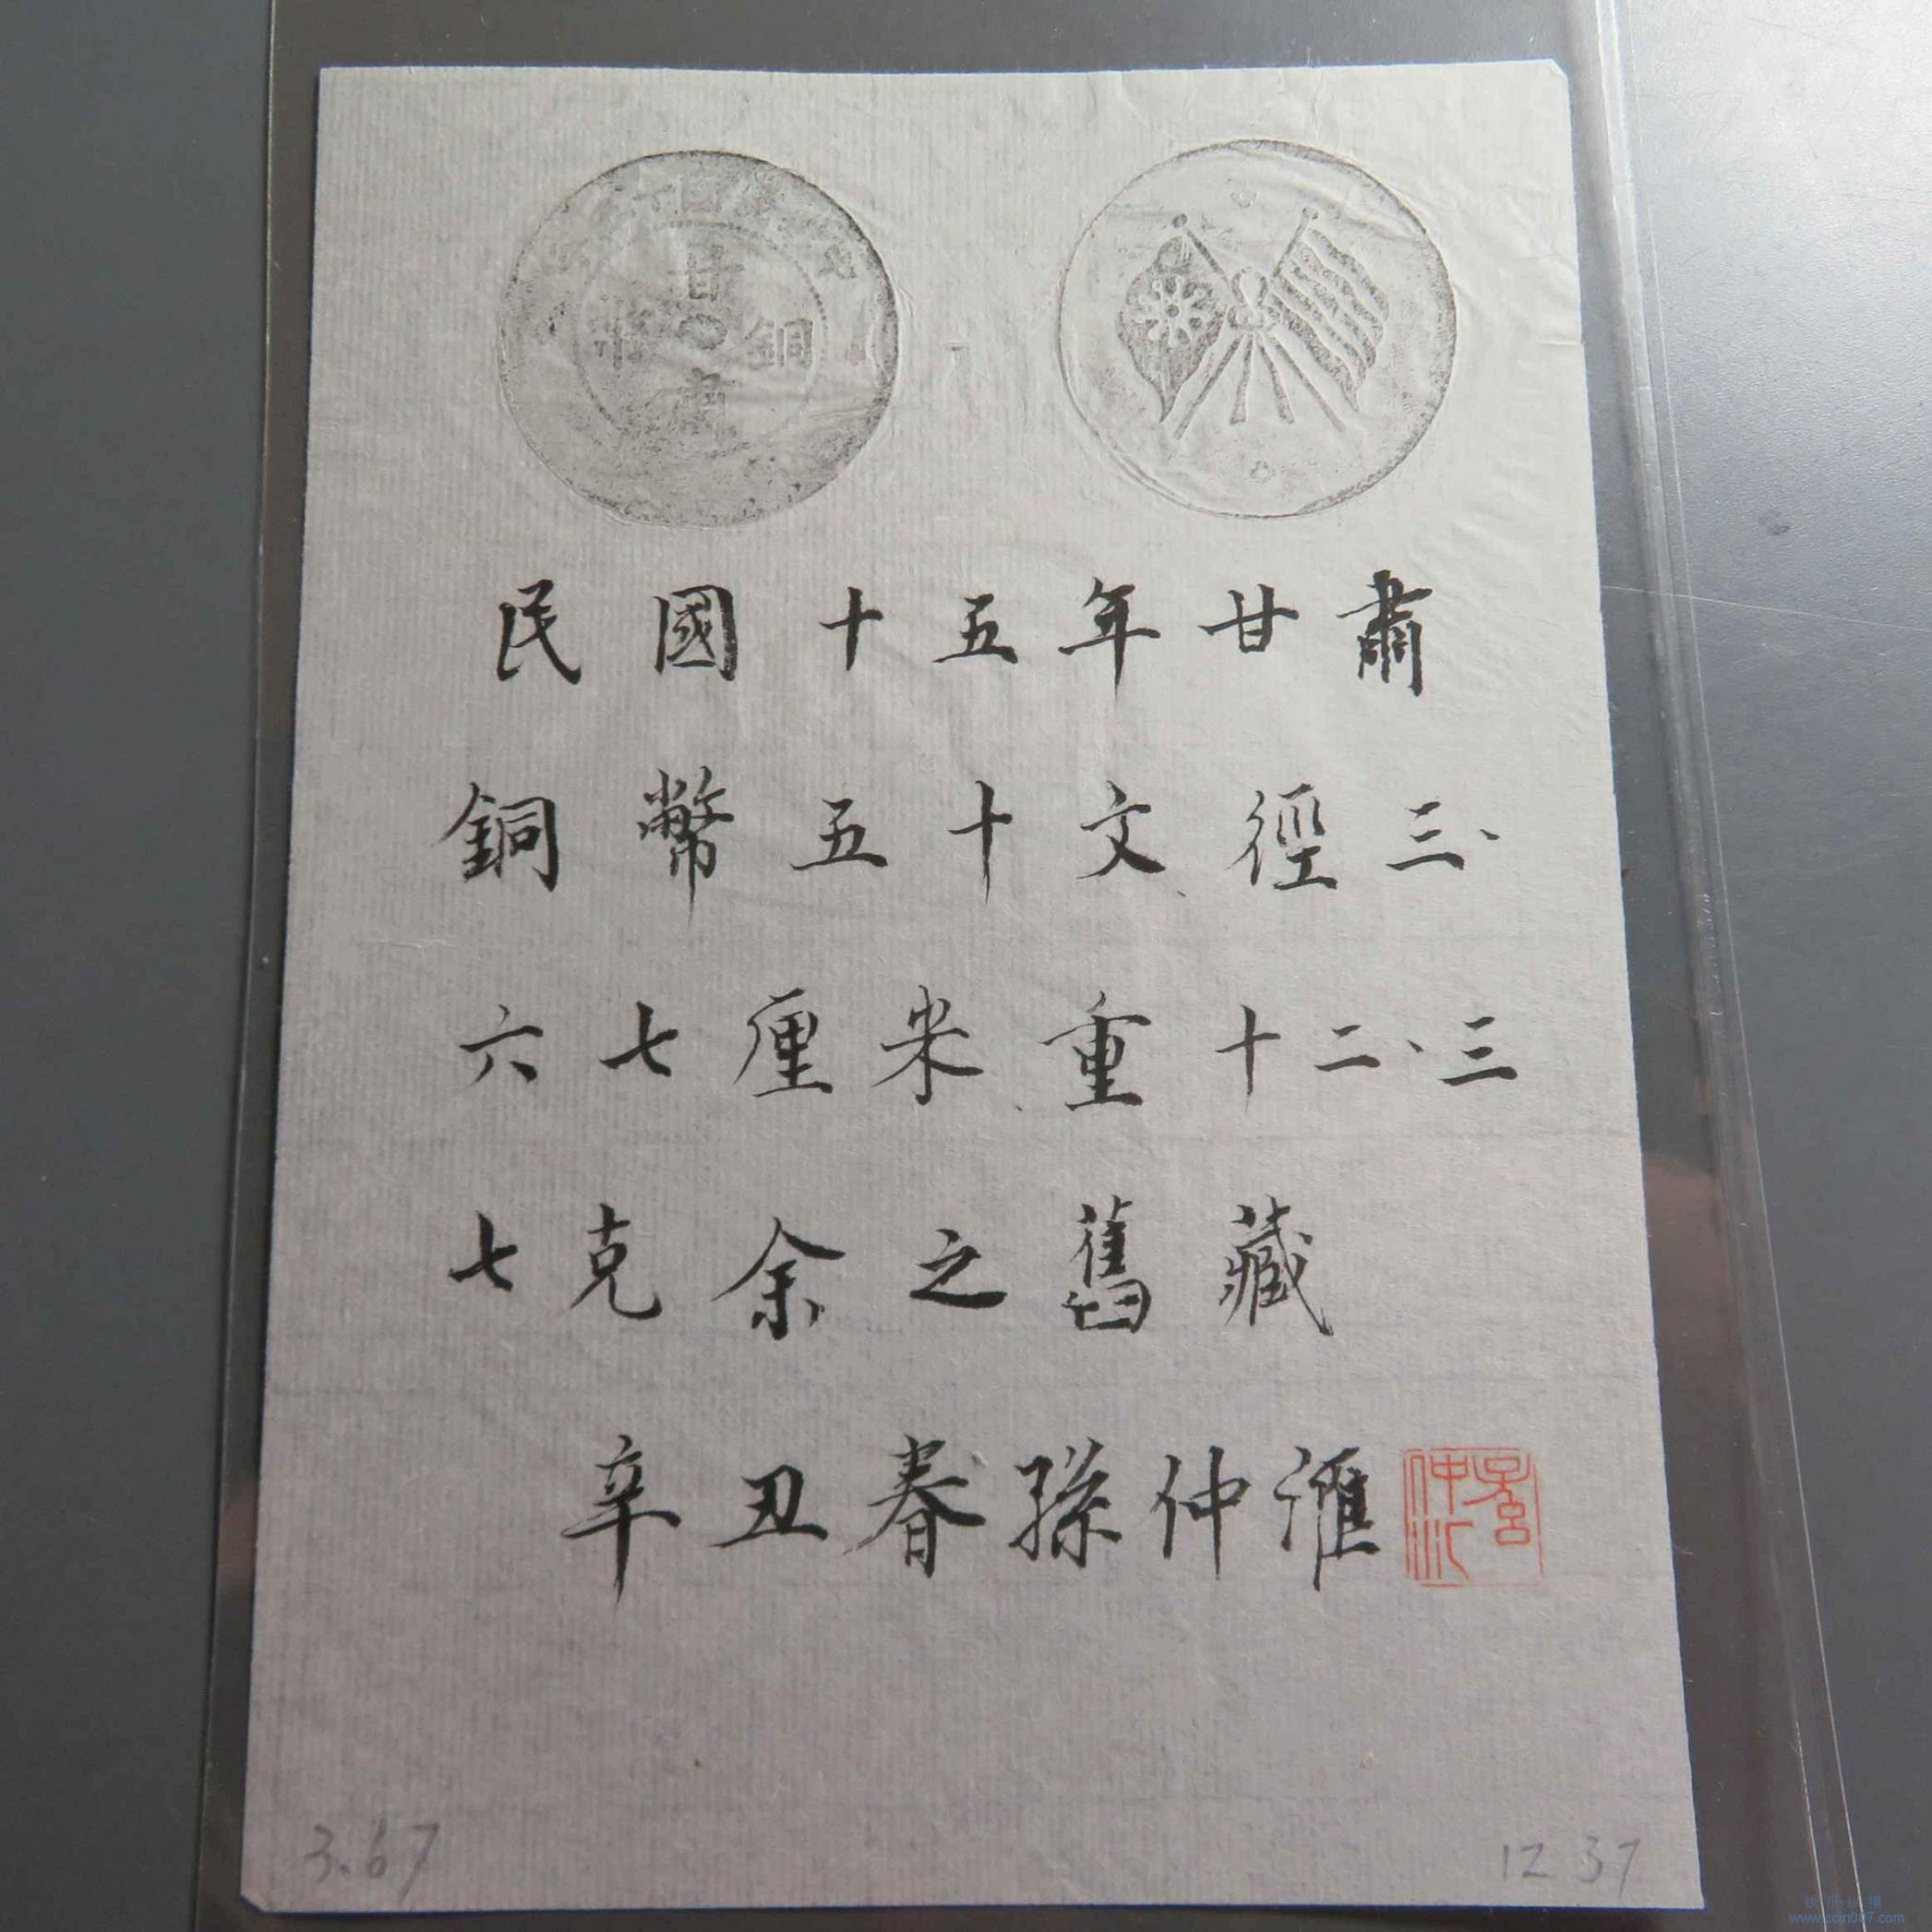 甘
銅
幣
肅
民國十五年甘肅
銅幣五十文徑三、
六七厘米重十二、三
七克余之舊藏
辛丑春孫仲滙
3.67
12 37
www.coin007.com